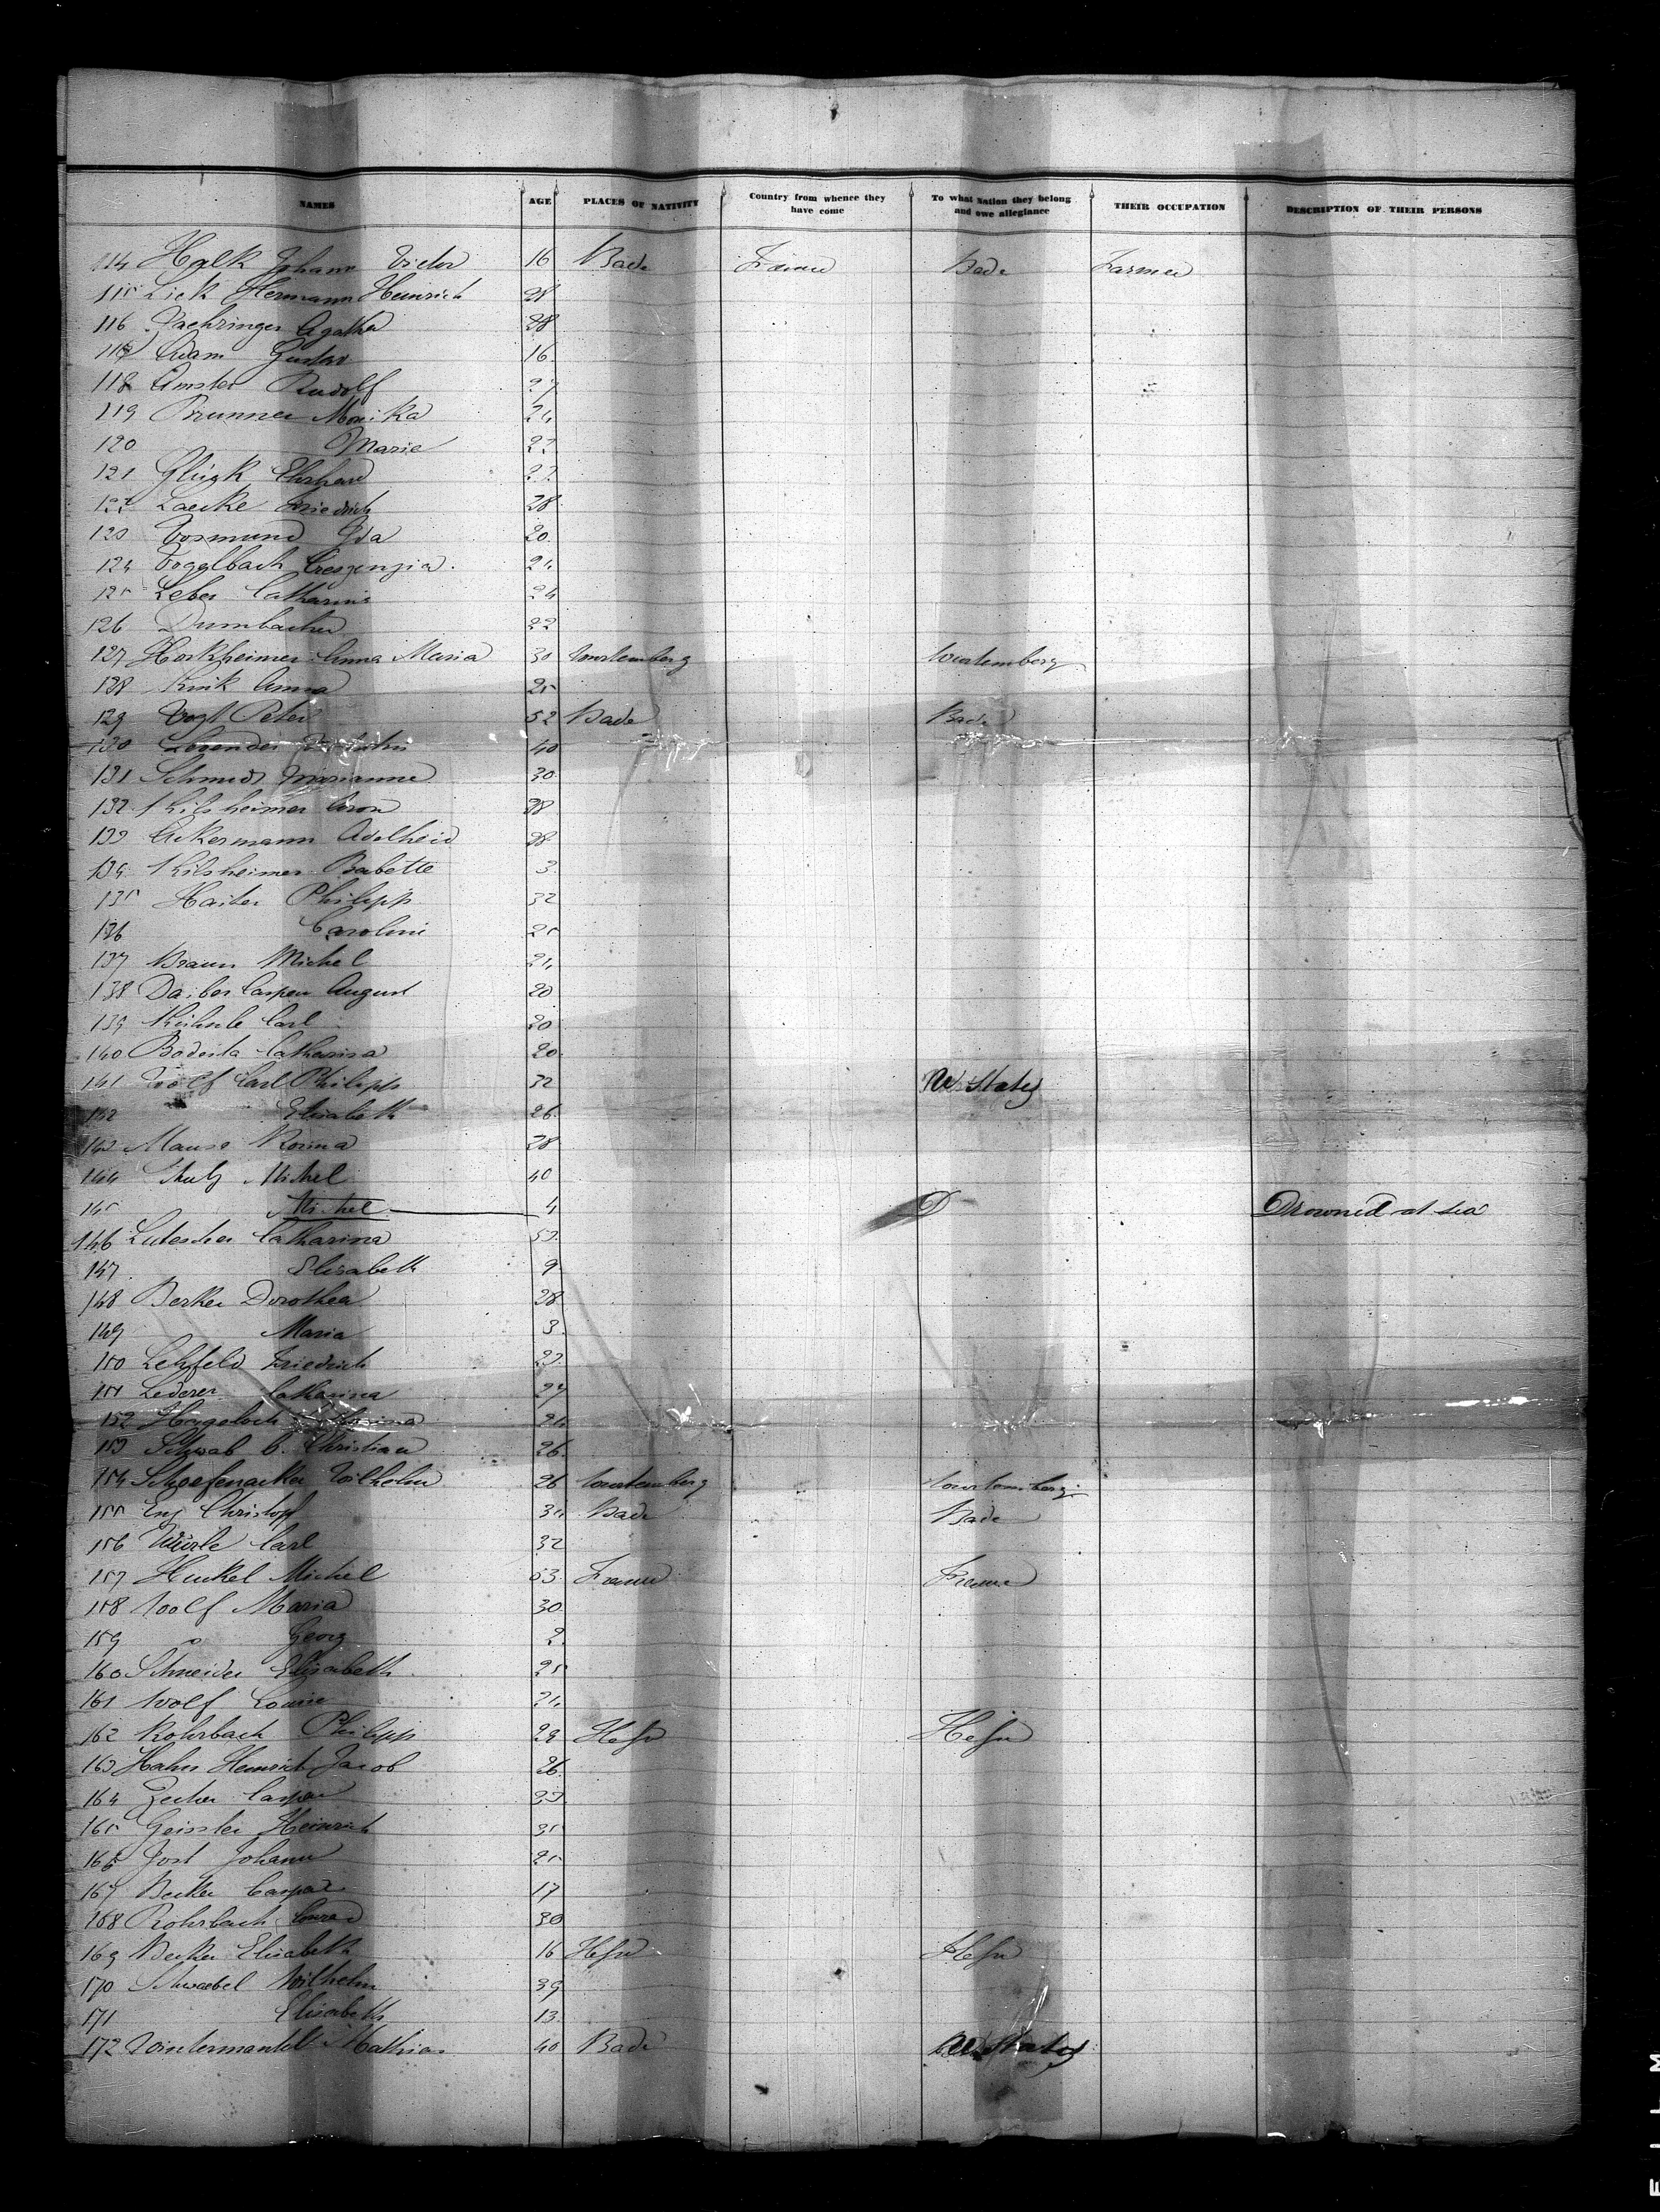 NAMES AGE PLACES OF NATIVITY Country from whence they have come To what Nation they belong and owe allegiance THEIR OCCUPATION DESCRIPTION OF THEIR PERSONS
114 Halk Johann Victor 16 Bade France Bade Farmer
115 Lick Hermann Heinrich 28
116 Zaehringer Agatha 28
117 Adam Gustav 16
118 Amster Rudolf 27
119 Brunner Monika 24
120 Marie 22
121 Glück Ehrhard 22
122 Laecke Friedrich 28
123 Vosmund Ida 20
124 Vogelbach Creszenzia 24
125 Leber Catharina 24
126 Dumbacher 22
127 Horkheimer Anna Maria 30 Wurtemberg Wurtemberg
128 Kink Anna 25
129 Vogt Peter 52 Bade Bade
130 40
131 Schmidt Marianne 30
132 Kilsheimer Aron 38
133 Ackermann Adelheid 28
134 Kilsheimer Babette 3
135 Haiter Philipp 32
136 Caroline 25
137 Braun Michel 24
138 Daiber Caspar August 20
139 Kühnle Carl 20
140 Catharina 20
141 Wolf Carl Philipp 32 U States
142 Elisabeth 26
143 Rosina 28
144 Michel 40
145 Michel 4 D Drowned at sea
146 Catharina 53
147 Elisabeth 9
148 Berker Dorothea 28
149 Maria 3
150 Lehfeld Friedrich 23
151 Lederer Catharina 27
152 Hageloch 24
153 Schwab C. Christian 26
154 Wilhelm 26 Wurtemberg Wurtemberg
155 Eng Christoph 34 Bade Bade
156 Würle Carl 32
157 Huckel Michel 53 France France
158 Wolf Maria 30
159 Georg 2
160 Schneider Elisabeth 25
161 Wolf Louise 24
162 Rohrbach Philipp 29 Hesse Hesse
163 Hahn Heinrich Jacob 26
164 Zecher Caspar 23
165 Geissler Heinrich 35
166 Jost Johann 25
167 Becker Caspar 17
168 Rohrbach Conrad 30
169 Becker Elisabeth 16 Hesse Hesse
170 Schwaebel Wilhelm 39
171 Elisabeth 13
172 Wintermantel Mathias 40 Bade U States
FILM